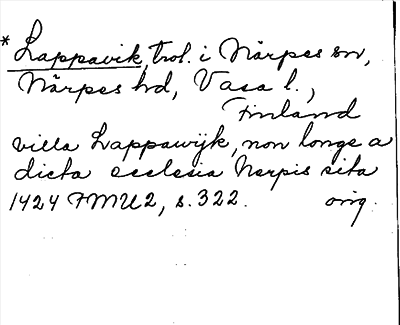 * Lappavik, trol. i Närpes sn,
Närpes hd, Vasa l.,
Finland
villa Lappawijk, non longe a
dicta ecclesia Nerpis sita
1424 FMU2, s. 322. orig.